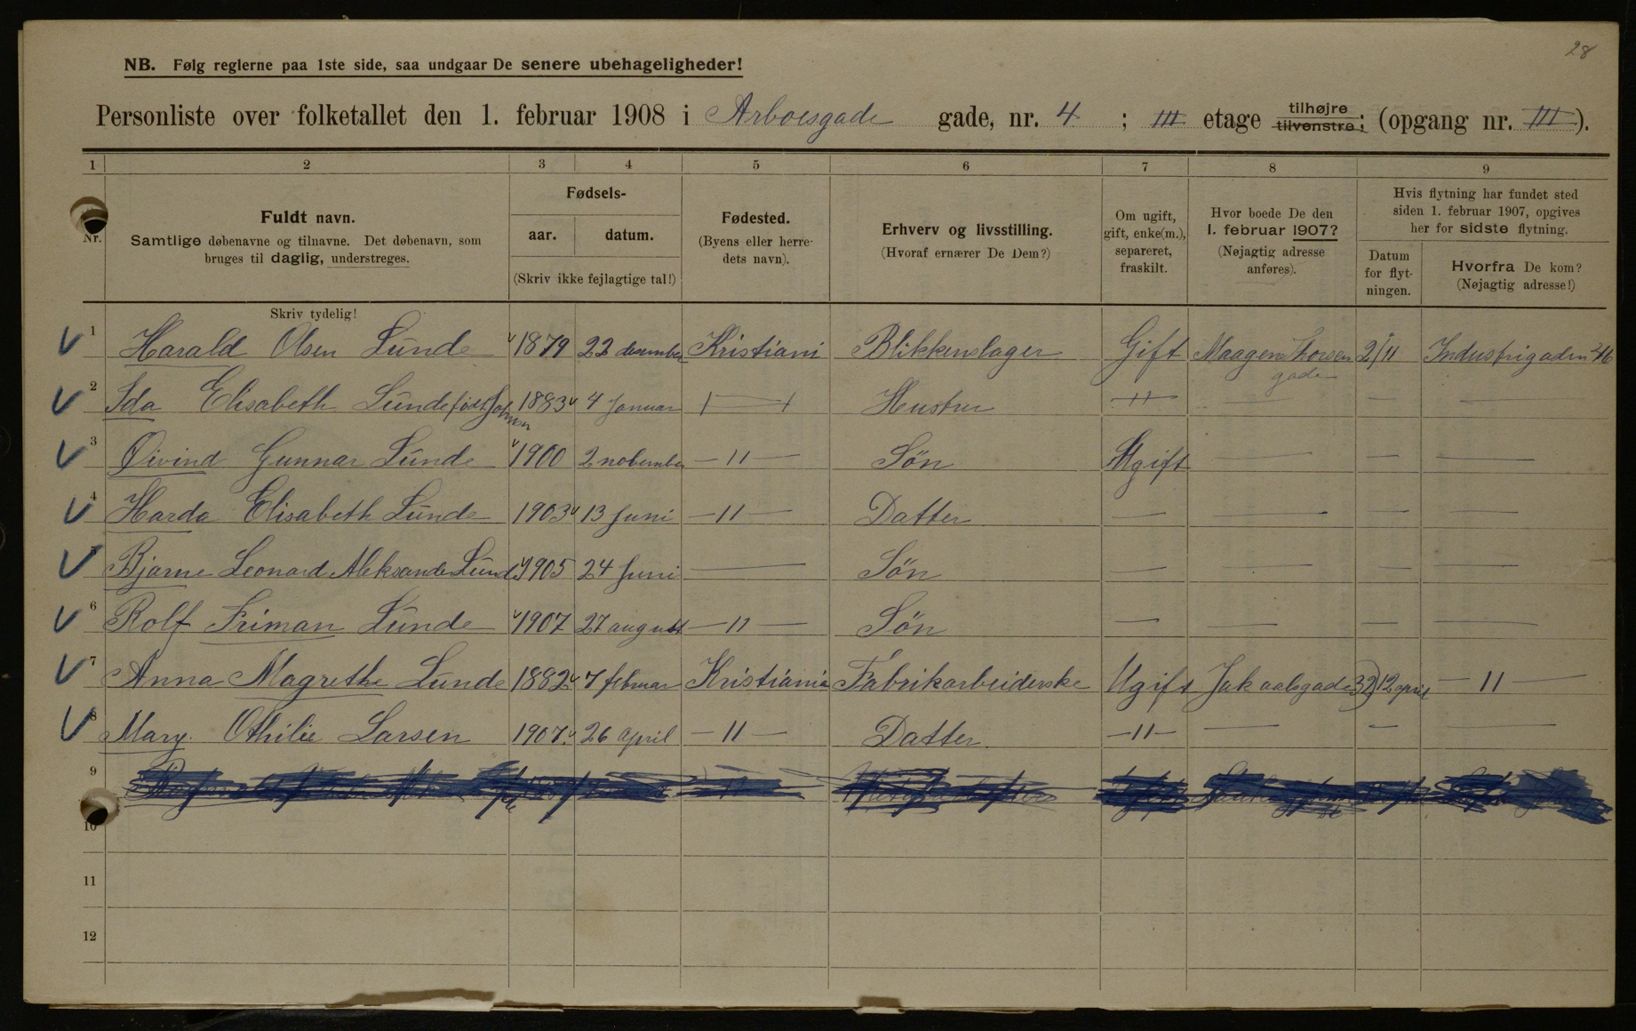 28
NB. Følg reglerne paa 1ste side, saa undgaar De senere ubehageligheder!
Personliste over folketallet den 1. februar 1908 i Arboesgade gade, nr. 4 ; III etage tilhøjre tilvenstre; (opgang nr. III).
1 2 3 4 5 6 7 8 9
Nr. Fuldt navn. Samtlige døbenavne og tilnavne. Det døbenavn, som bruges til daglig, understreges.
Fødsels- aar. datum. (Skriv ikke fejlagtige tal!)
Fødested. (Byens eller herredets navn).
Erhverv og livsstilling. (Hvoraf ernærer De Dem?)
Om ugift, gift, enke(m.), separeret, fraskilt.
Hvor boede De den 1. februar 1907? (Nøjagtig adresse anføres).
Hvis flytning har fundet sted siden 1. februar 1907, opgives her for sidste flytning.
Datum for flytningen. Hvorfra De kom? (Nøjagtig adresse!)
Skriv tydelig!
1 Harald Olsen Lunde 1879 22 desember Kristiani Blikkenslager Gift Maagens Thorsen gade 2/11 Industrigaden 46
2 Ida Elisabeth Lunde født 1883 4 Januar Hustru —"—
3 Øivind Gunnar Lunde 1900 2 nobember —"— Søn Ugift —
4 Harda Elisabeth Lunde 1903 13 Juni —"— Datter —
5 Bjarne Leonard Aleksander Lunde 1905 24 Juni — Søn —
6 Rolf Friman Lunde 1907 27 august —"— Søn —
7 Anna Magrethe Lunde 1882 7 februar Kristiania Fabrikarbeiderske Ugift Jak aalsgade 32 12 april —"—
8 Mary Othilie Larsen 1907. 26 april —"— Datter. —"—
9
10
11
12